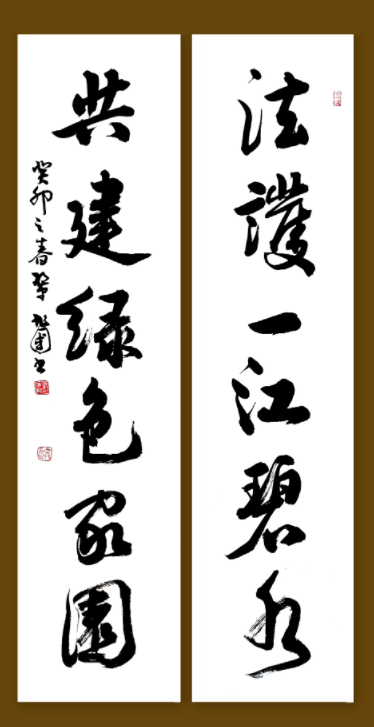 法護一江碧水
共建绿色家園
癸卯之春